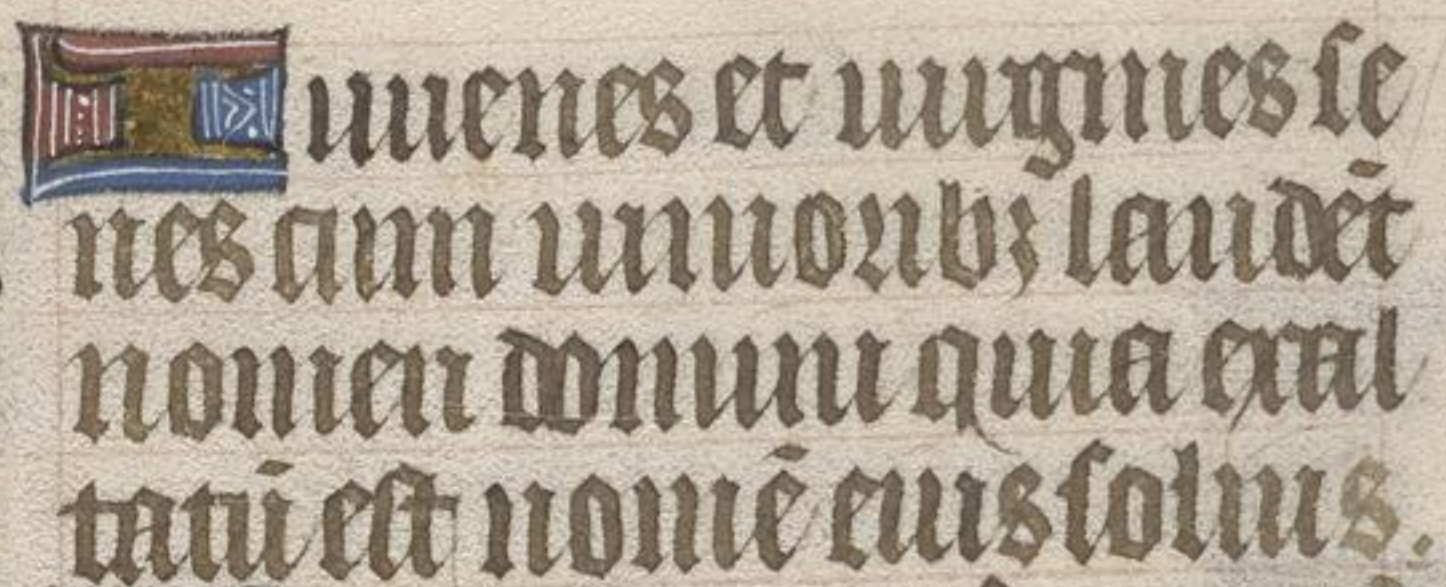 Iuuenes et uirgines se
nes cum iunioribꝫ laudēt
nomen domini quia exal
tatū est nomē eius solius.